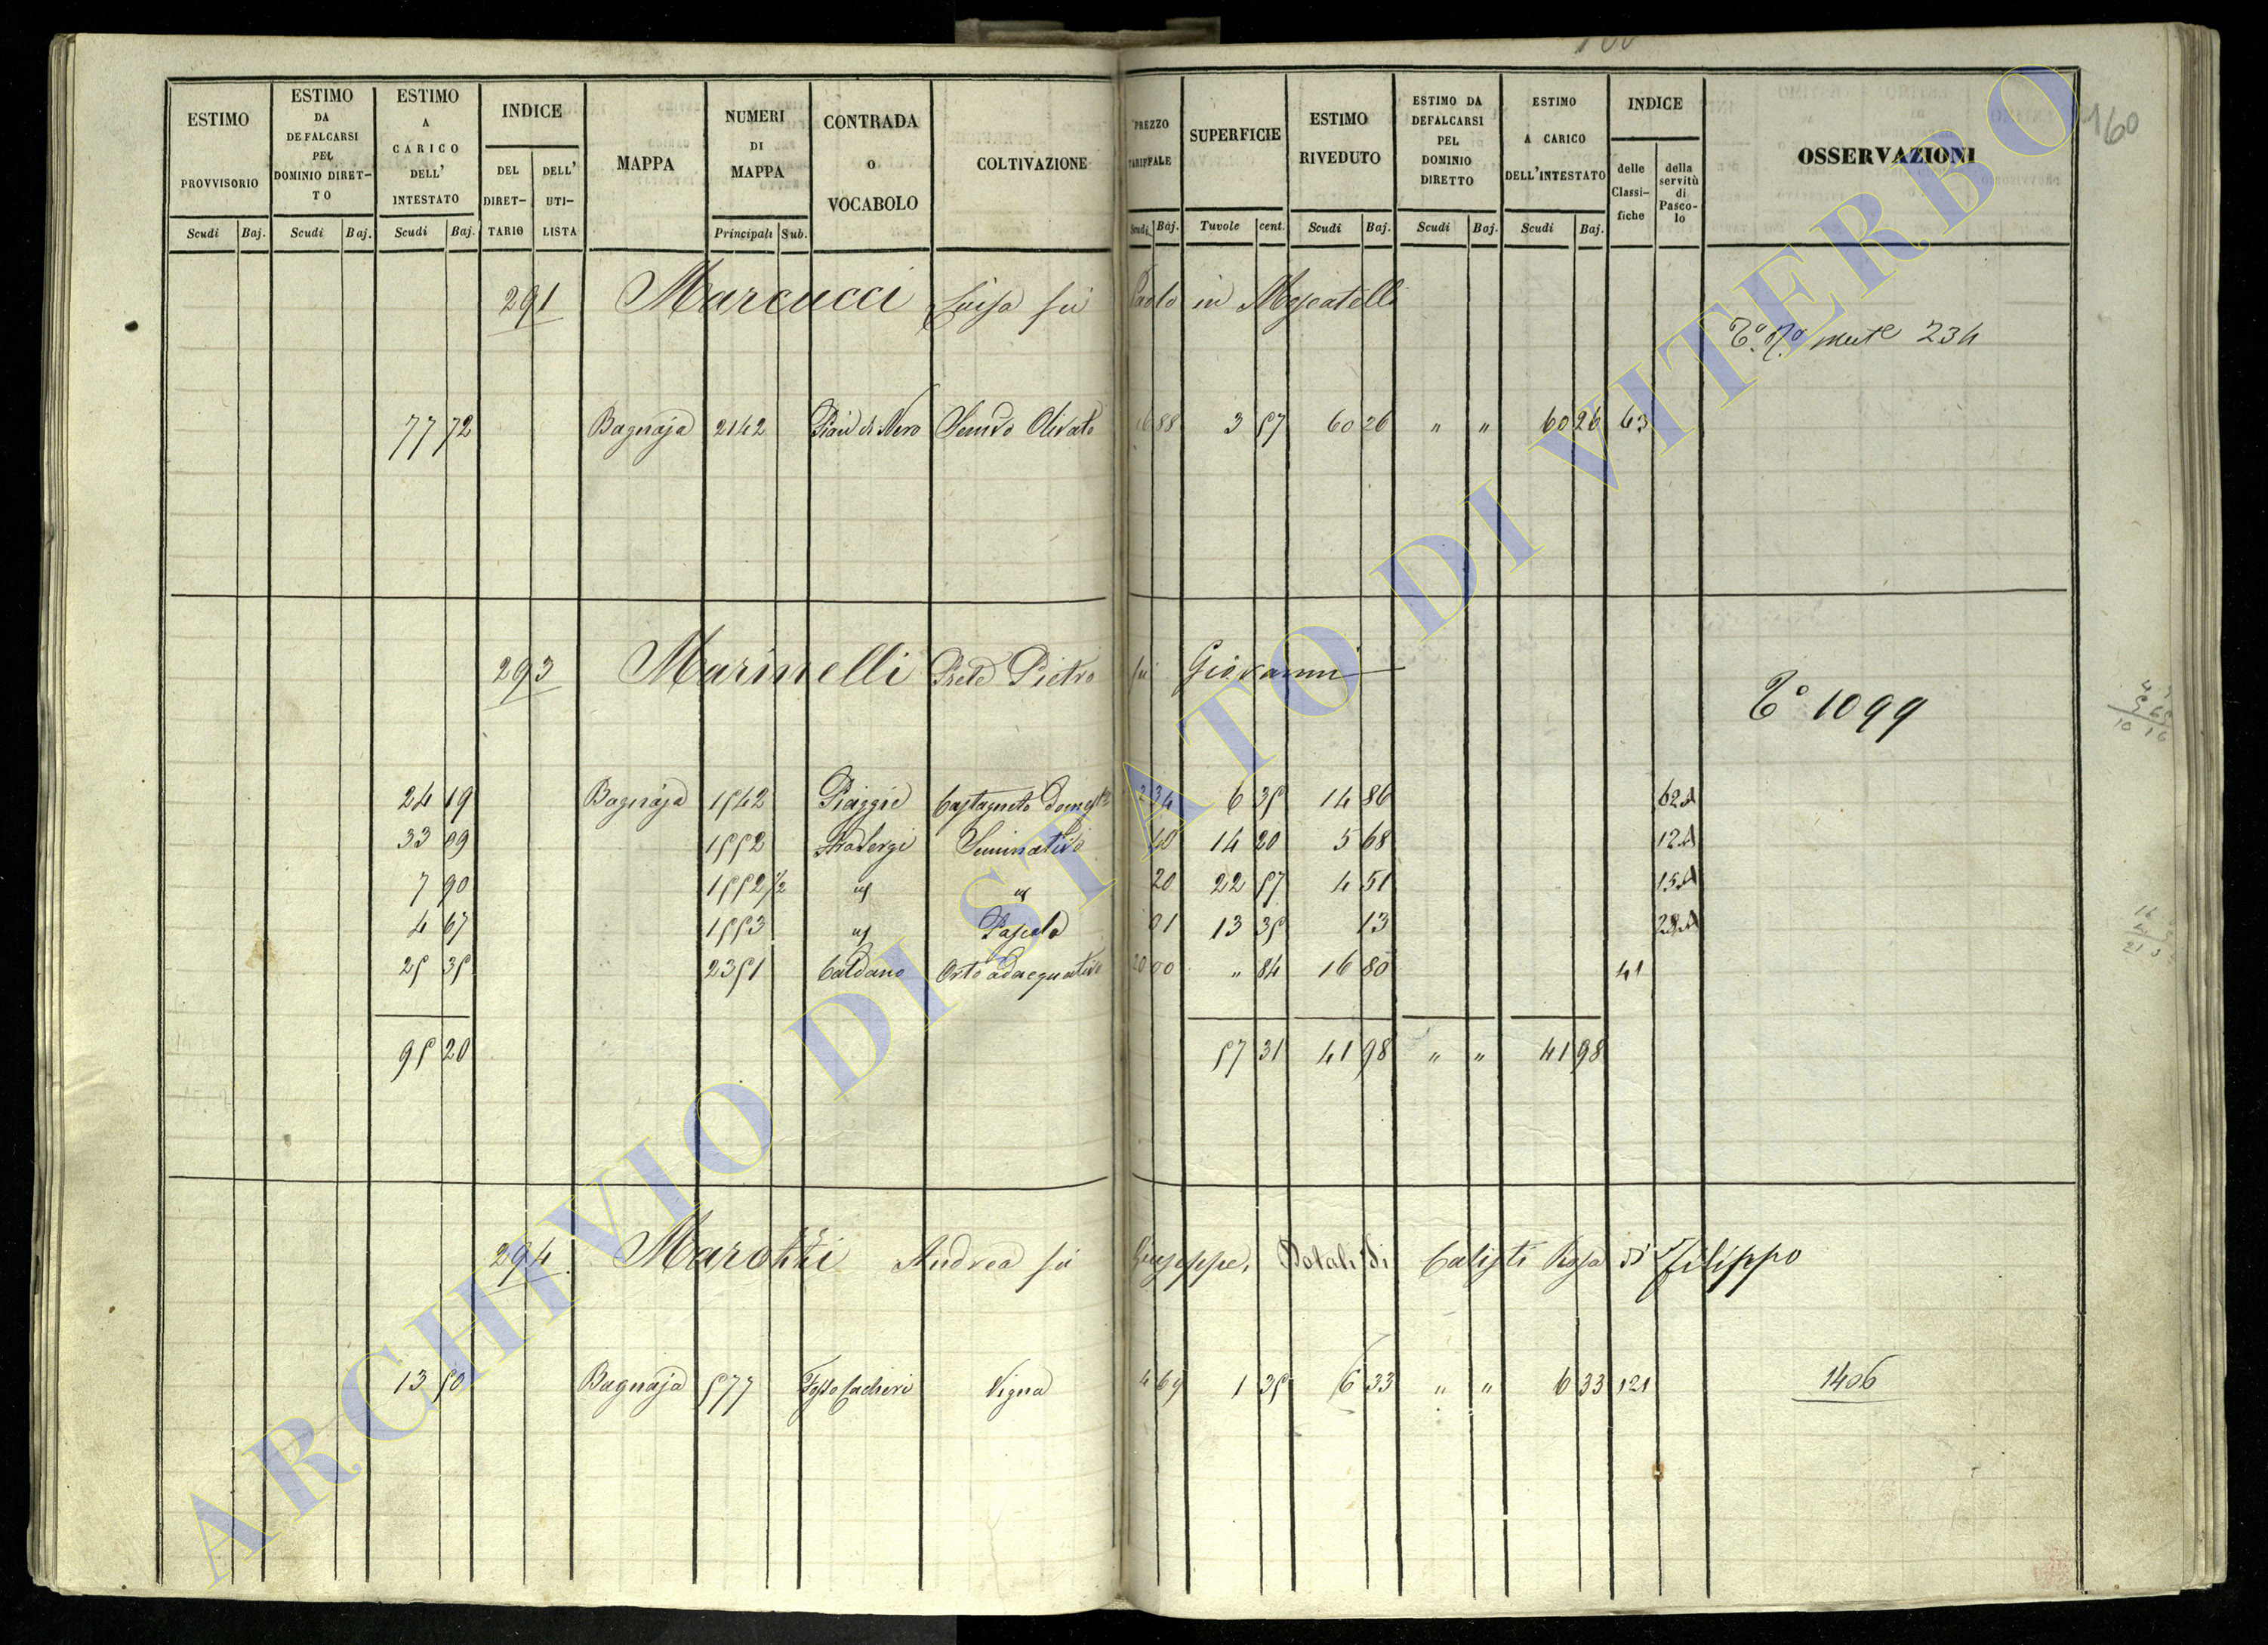 160
ESTIMO PROVVISORIO Scudi Baj.
ESTIMO DA DEFALCARSI PEL DOMINIO DIRETTO Scudi Baj.
ESTIMO A CARICO DELL' INTESTATO Scudi Baj.
INDICE DEL DIRETTARIO DELL' UTILISTA
MAPPA
NUMERI DI MAPPA Principali Sub.
CONTRADA O VOCABOLO
COLTIVAZIONE
PREZZO TARIFFALE Scudi Baj.
SUPERFICIE Tavole cent.
ESTIMO RIVEDUTO Scudi Baj.
ESTIMO DA DEFALCARSI PEL DOMINIO DIRETTO Scudi Baj.
ESTIMO A CARICO DELL'INTESTATO Scudi Baj.
INDICE delle Classifiche della servitù di Pascolo
OSSERVAZIONI
291 Marcucci Luisa fù Paolo in Moscatelli
234
77 72 Bagnaja 2142 Pian di Nero Semvo Olivato 16 88 3 57 60 26 " " 60 26 43
293 Marinelli Prete Pietro fù Giovanni
1099
24 19 Bagnaja 1542 Piaggie Castagneto Domest 2 34 6 35 14 86 62A
33 09 1552 Seminativo 40 14 20 5 68 12A
7 90 1552 1/2 " " 20 22 57 4 51 15A
4 67 1553 " Pascolo 01 13 35 13
25 35 2351 Caldano Orto adacquativo 20 00 " 84 16 80 41
95 20 57 31 41 98 " " 41 98
294 Marotti Andrea fù Giuseppe, Dotali di Calisti Rosa di Filippo
13 50 Bagnaja 577 Vigna 4 69 1 35 6 33 " " 6 33 121 1406
ARCHIVIO DI STATO DI VITERBO